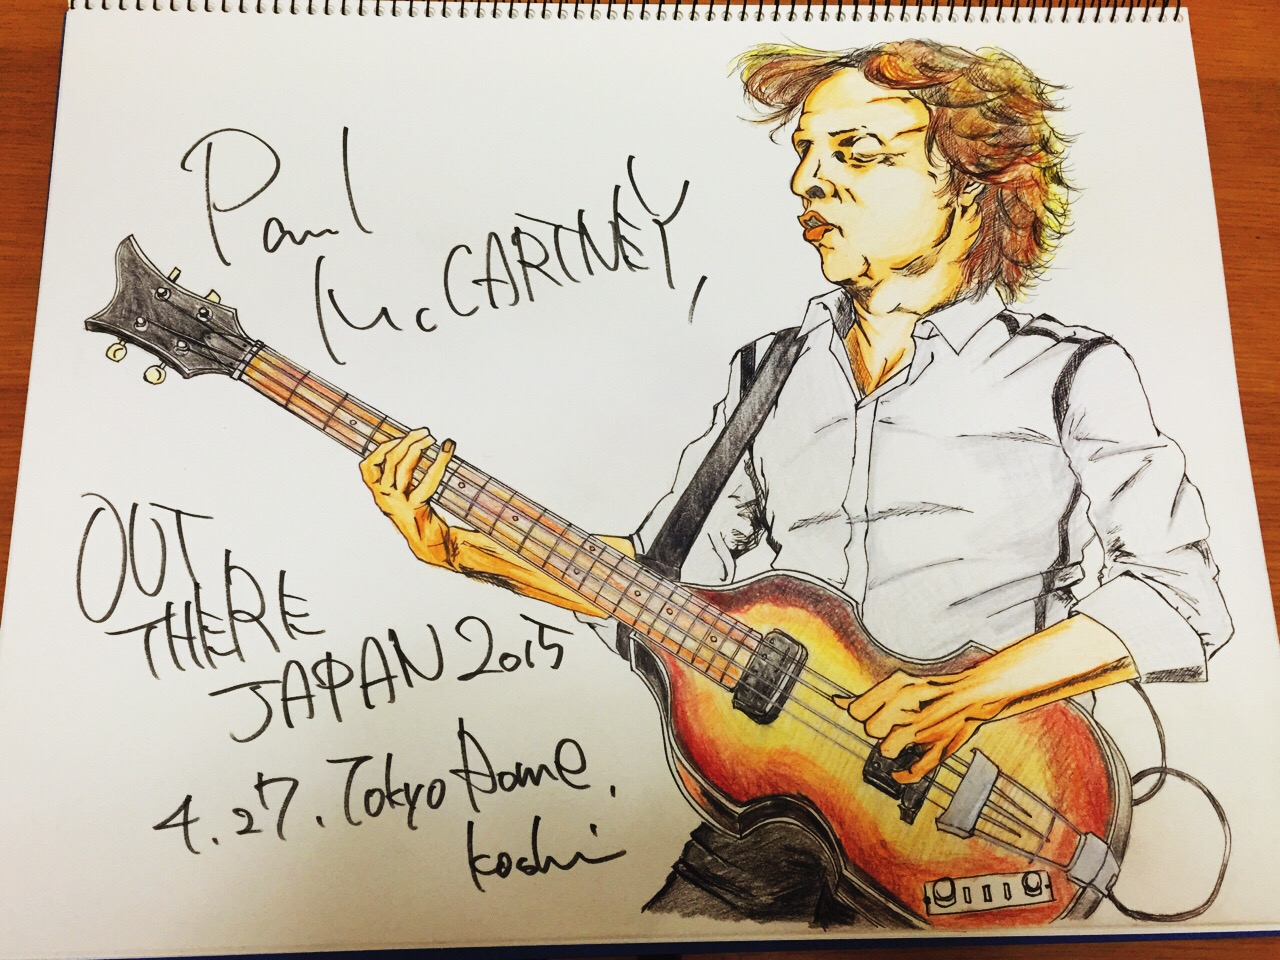 Paul
McCARTNEY,
OUT
THERE
JAPAN 2015
4.27. Tokyo Dome.
Koshi